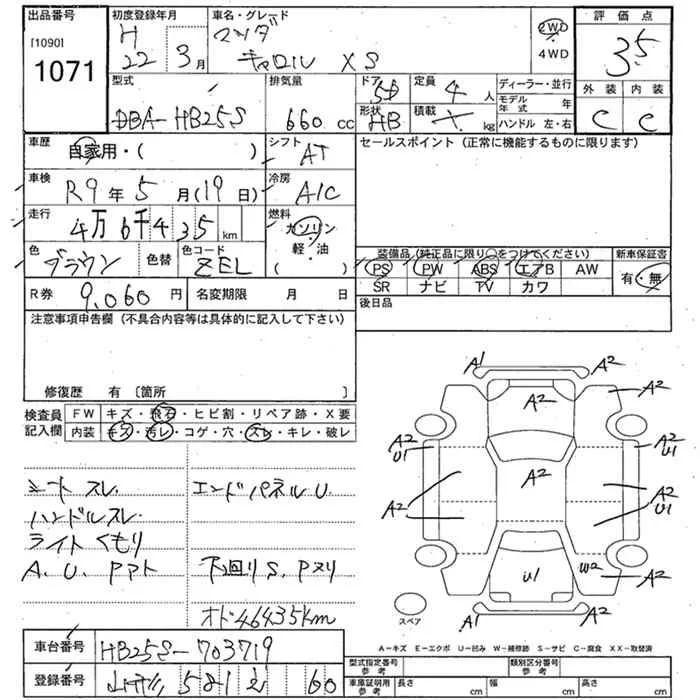 出品番号 初度登録年月 車名・グレード 評価点
[1090] H 22年 3月 マツダ 2WD 3.5
1071 キャロル XS 4WD
型式 排気量 ドア 5D 定員 4人 ディーラー・並行 外装 内装
DBA-HB25S 660 cc 形状 HB 積載 kg モデル年式 年 C C
ハンドル 左・右
車歴 自家用・( ) シフト AT セールスポイント (正常に機能するものに限ります)
車検 R9年 5月 (19日) 冷房 A/C
走行 4万6千435km 燃料 ガソリン・軽・油 ( )
色 ブラウン 色替 色コード ZEL 装備品 (純正品に限り○をつけてください) 新車保証書
PS PW ABS エアB AW 有・無
R券 9,060円 名変期限 月 日 SR ナビ TV カワ
注意事項申告欄 (不具合内容等は具体的に記入して下さい) 後日品
修復歴 有 〔箇所 〕
検査員記入欄 FW キズ・飛石・ヒビ割・リペア跡・X要
内装 キズ・汚レ・コゲ・穴・スレ・キレ・破レ
A1 A2
A2 A2
A2 U1 A2 U1
A2 A2 A2 U1
U1 W2 A2
A1 A2
スペア
シートスレ エンドパネルU.
ハンドルスレ
ライトくもり
A. U. Pアト 下回りS. Pヌリ
オド46435km
A-キズ E-エクボ U-凹み W-補修跡 S-サビ C-腐食 XX-取替済
車台番号 HB25S-703719
登録番号 581 60
型式指定番号 参考 類別区分番号 参考
車庫証明用 参考 長さ cm 幅 cm 高さ cm